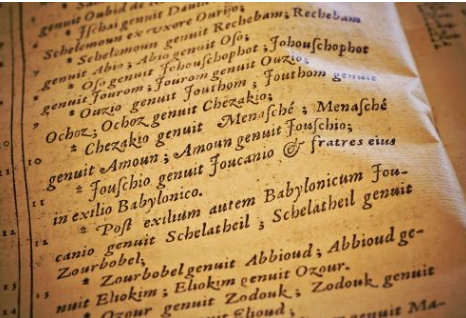 genuit Oubid de
* Ischai genuit Dauid
Schelemoun ex vxore Ourijo;
* Schelemoun genuit Rechebam; Rechebam
genuit Abio; Abio genuit Oso;
8 * Oso genuit Jehouschophot; Jehouschophot
genuit Jouram; Jouram genuit Ouzio;
9 * Ouzio genuit Jouthom; Jouthom genuit
Ochoz; Ochoz genuit Chezakio;
10 * Chezakio genuit Menasché; Menasché
genuit Amoun; Amoun genuit Jouschio;
11 * Jouschio genuit Joucanio & fratres eius
in exilio Babylonico.
12 * Post exilium autem Babylonicum Jou-
canio genuit Schelatheil; Schelatheil genuit
Zourbobel;
13 * Zourbobel genuit Abbioud; Abbioud ge-
nuit Eliokim; Eliokim genuit Ozour.
14 * Ozour genuit Zodouk; Zodouk genuit
genuit Elioud;
genuit Ma-